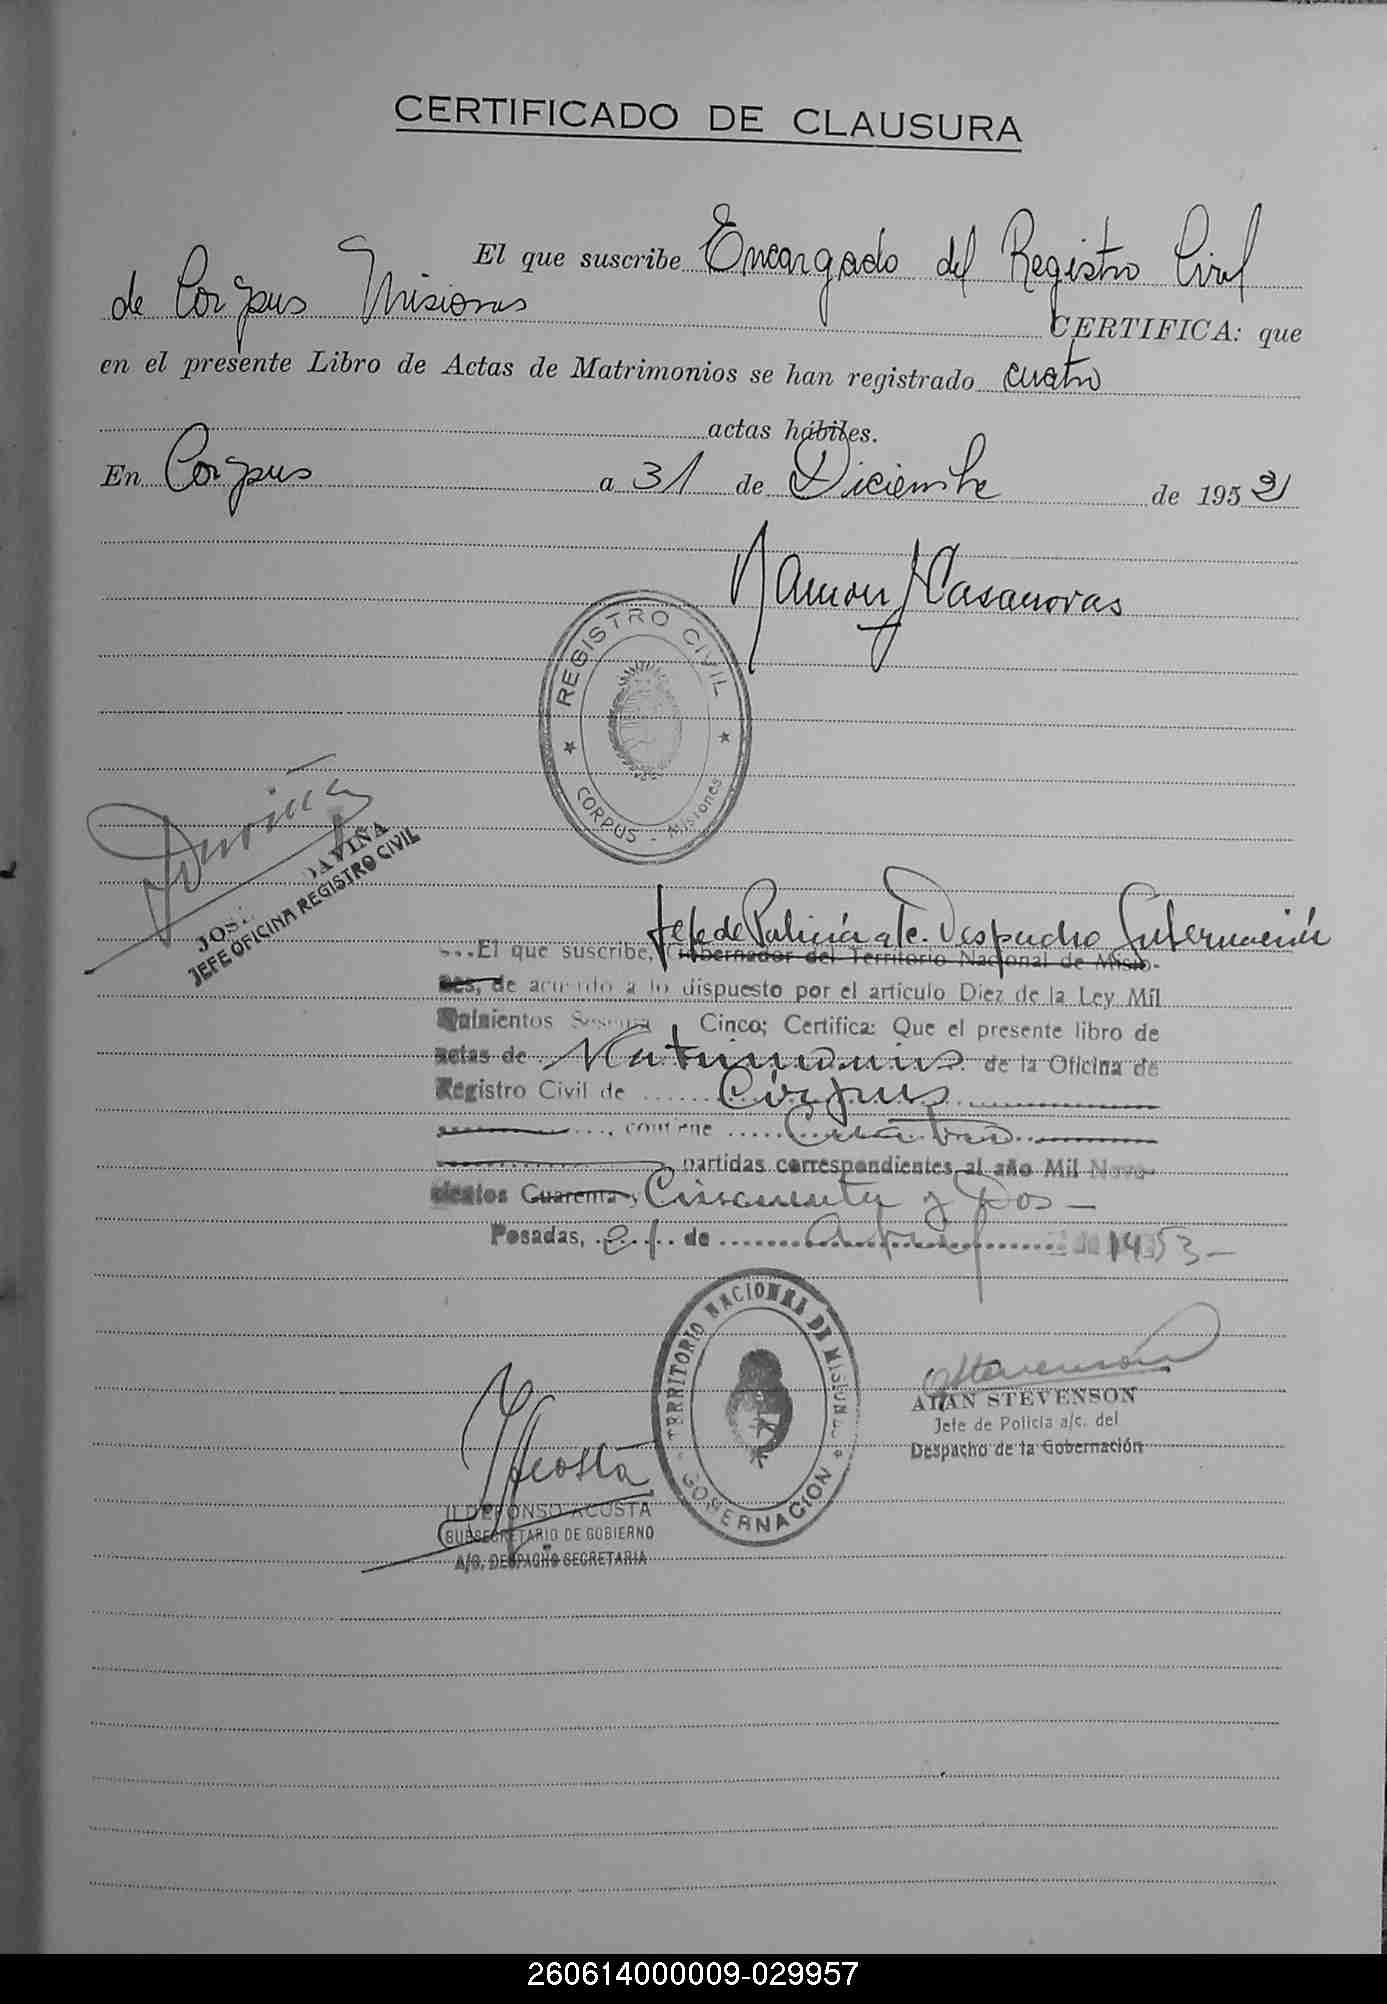 CERTIFICADO DE CLAUSURA
El que suscribe Encargado del Registro Civil
de Corpus Misiones CERTIFICA: que
en el presente Libro de Actas de Matrimonios se han registrado cuatro
actas hábiles.
En Corpus a 31 de Diciembre de 1952
Ramon J Casanovas
REGISTRO CIVIL
CORPUS - Misiones
Daviña
DAVIÑA
JEFE OFICINA REGISTRO CIVIL
Jefe de Policía a/c. Despacho Gobernación
El que suscribe, Gobernador del Territorio Nacional de Misio-
nes, de acuerdo a lo dispuesto por el artículo Diez de la Ley Mil
Quinientos Sesenta Cinco; Certifica: Que el presente libro de
actas de Matrimonios de la Oficina de
Registro Civil de Corpus
contiene Cuatro
partidas correspondientes al año Mil Nove-
cientos Cuarenta y Cincuenta y Dos -
Posadas, de 1953 -
TERRITORIO NACIONAL DE MISIONES
GOBERNACION
Stevenson
ALAN STEVENSON
Jefe de Policía a/c. del
Despacho de la Gobernación
Acosta
ILDEFONSO ACOSTA
SUBSECRETARIO DE GOBIERNO
A/C. DESPACHO SECRETARIA
260614000009-029957